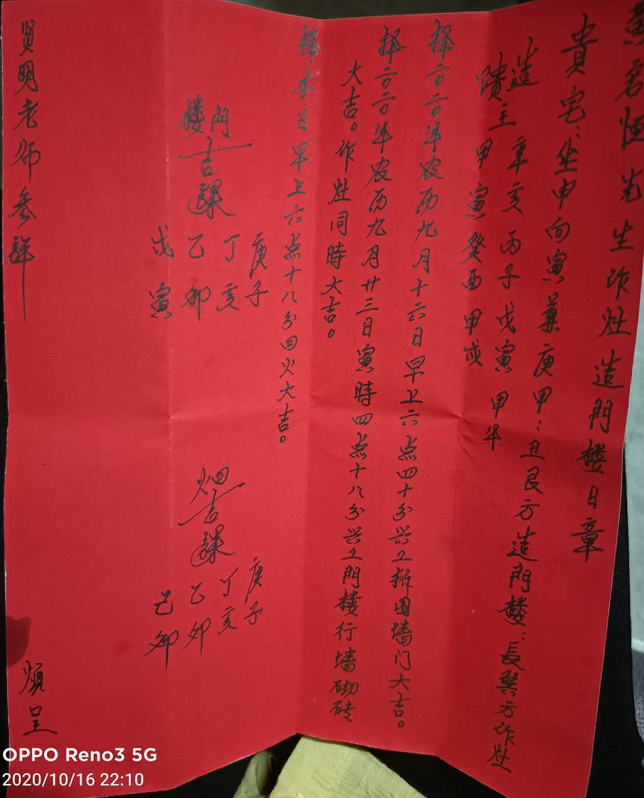 君恒先生作灶造門楼日章
貴宅:坐申向寅兼庚甲:丑艮方造門楼:長巽方作灶
造 辛亥 丙子 戊寅 甲午
主 甲寅 癸酉 甲戌
择二〇二〇年农历九月十六日早上六点四十分兴工拆围墙门大吉。
择二〇二〇年农历九月廿三日寅時四点十八分兴工門楼行墙砌砖
大吉。作灶同時大吉。
择本日早上六点十八分回火大吉。
門楼吉課
庚子
丁亥
乙卯
戊寅
吉課
庚子
丁亥
乙卯
己卯
贤明老师参详
呈
OPPO Reno3 5G
2020/10/16 22:10